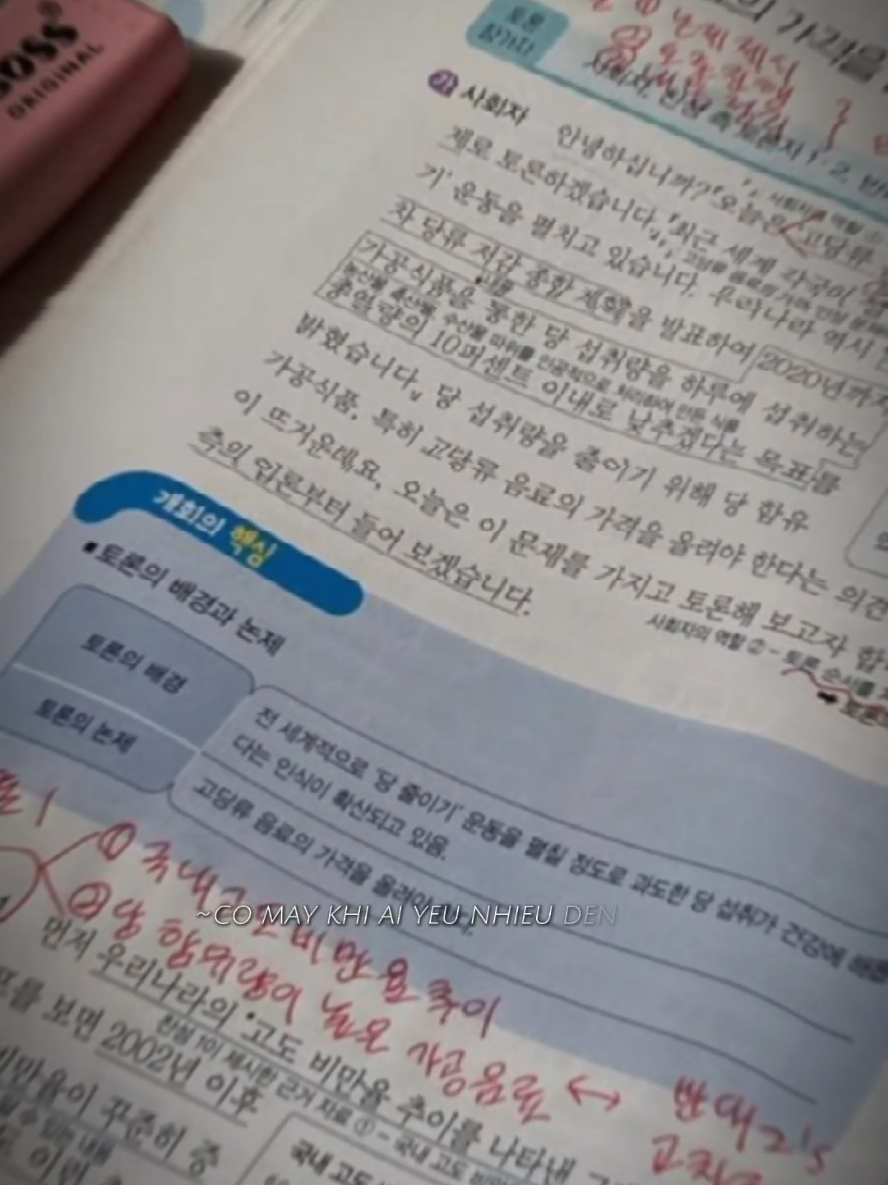 BOSS
ORIGINAL
의 가격을
토론
참가자
① 논제 제시
사회자, 찬성 측 토론자 1·2, 반
가 사회자 안녕하십니까? 오늘은 고당류
제로 토론하겠습니다. 최근 세계 각국이
기' 운동을 펼치고 있습니다. 우리나라 역시
차 당류 저감 종합 계획을 발표하여 2020년까지
가공식품을 통한 당 섭취량을 하루에 섭취하는
농산물, 축산물, 수산물 따위를 인공적으로 처리하여 만든 식품
총열량의 10퍼센트 이내로 낮추겠다는 목표를
밝혔습니다. 당 섭취량을 줄이기 위해 당 함유
가공식품, 특히 고당류 음료의 가격을 올려야 한다는 의견
이 뜨거운데요, 오늘은 이 문제를 가지고 토론해 보고자 합
측의 입론부터 들어 보겠습니다.
사회자의 역할 ② - 토론 순서를
➡ 토론
개회의 핵심
토론의 배경과 논제
토론의 배경
전 세계적으로 '당 줄이기' 운동을 펼칠 정도로 과도한 당 섭취가 건강에 해롭
다는 인식이 확산되고 있음.
토론의 논제
고당류 음료의 가격을 올려야
론 1
① 국내 고도비만율 추이
② 당 함유량이 높은 가공음료 ↔ 반대 2's
~CO MAY KHI AI YEU NHIEU DEN
먼저 우리나라의 '고도 비만율 추이를 나타낸
찬성 1이 제시한 근거 자료 ① - 국내 고도 비만
를 보면 2002년 이후
비만율이 꾸준히 증
국내 고도
이런